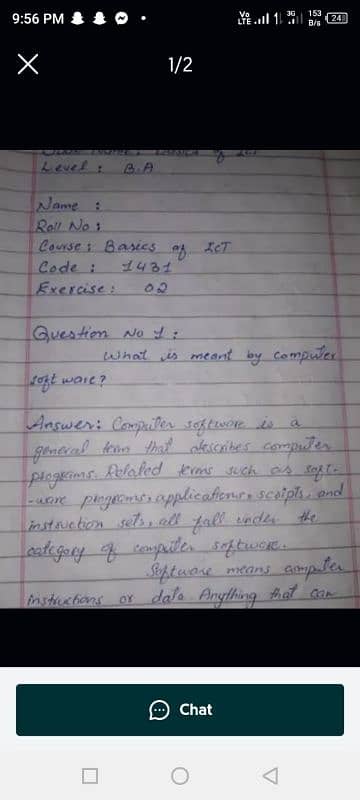 9:56 PM
Vo LTE 3G 153 B/s 24
1/2
Level : B.A
Name :
Roll No :
Course : Basics of ICT
Code : 1431
Exercise : 02
Question No 1 :
What is meant by computer
soft ware?
Answer: Computer software is a
general term that describes computer
programs. Related terms such as soft-
-ware programs, applications, scripts, and
instruction sets, all fall under the
category of computer software.
Software means computer
instructions or data. Anything that can
Chat